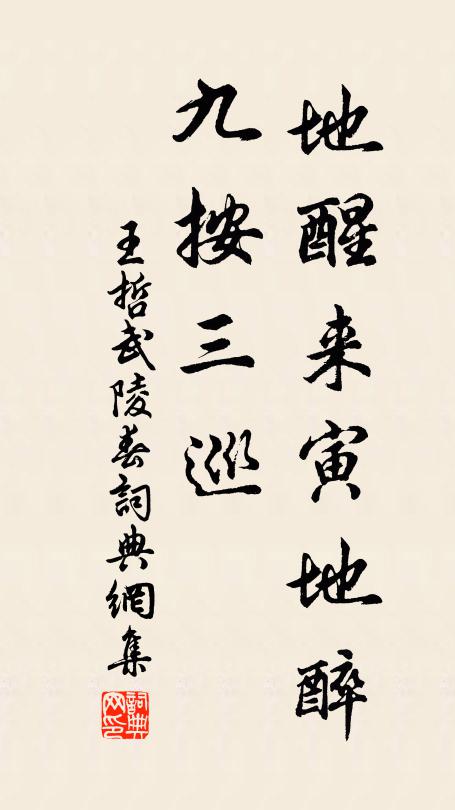 地醒来寅地醉
九按三巡
王哲武陵春詞典網集
詞典
网印